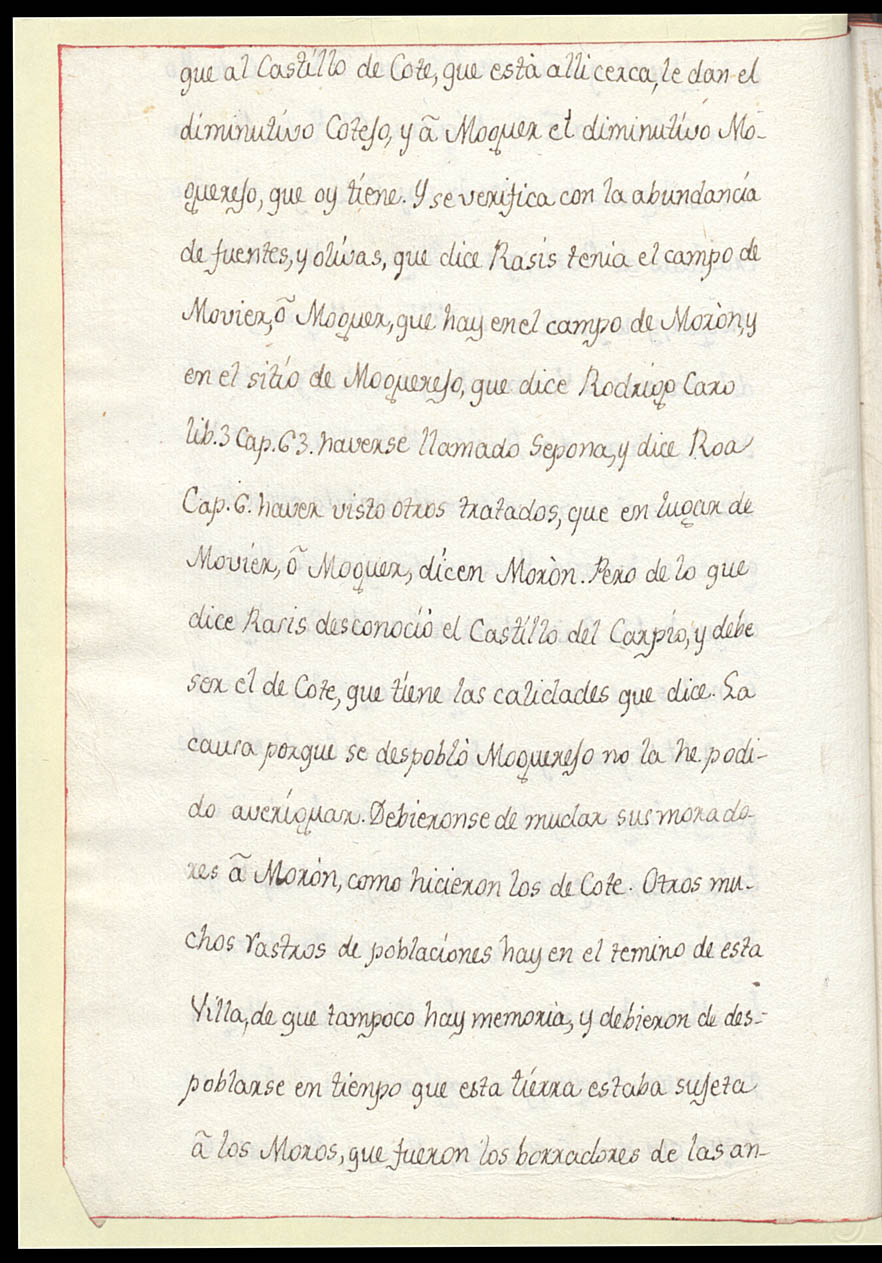 que al Castillo de Cote, que està alli cerca, le dan el
diminutivo Cotejo, y ã Moquer el diminutivo Mo-
querejo, que oy tiene. Y se verifica con la abundancia
de fuentes, y olivas, que dice Rasis tenia el campo de
Movier, õ Moquer, que hay en el campo de Moròn, y
en el sitio de Moquerejo, que dice Rodrigo Caro
lib. 3 Cap. 63. haverse llamado Sepona, y dice Roa
Cap. 6. haver visto otros tratados, que en lugar de
Movier, õ Moquer, dicen Moròn. Pero de lo que
dice Rasis desconociò el Castillo del Carpio, y debe
ser el de Cote, que tiene las calidades que dice. La
causa porque se despoblò Moquerejo no la he podi-
do averiguar. Debieronse de mudar sus morado-
res ã Moròn, como hicieron los de Cote. Otros mu-
chos rastros de poblaciones hay en el temino de esta
Villa, de que tampoco hay memoria, y debieron de des-
poblarse en tienpo que esta tierra estaba sujeta
ã los Moros, que fueron los borradores de las an-